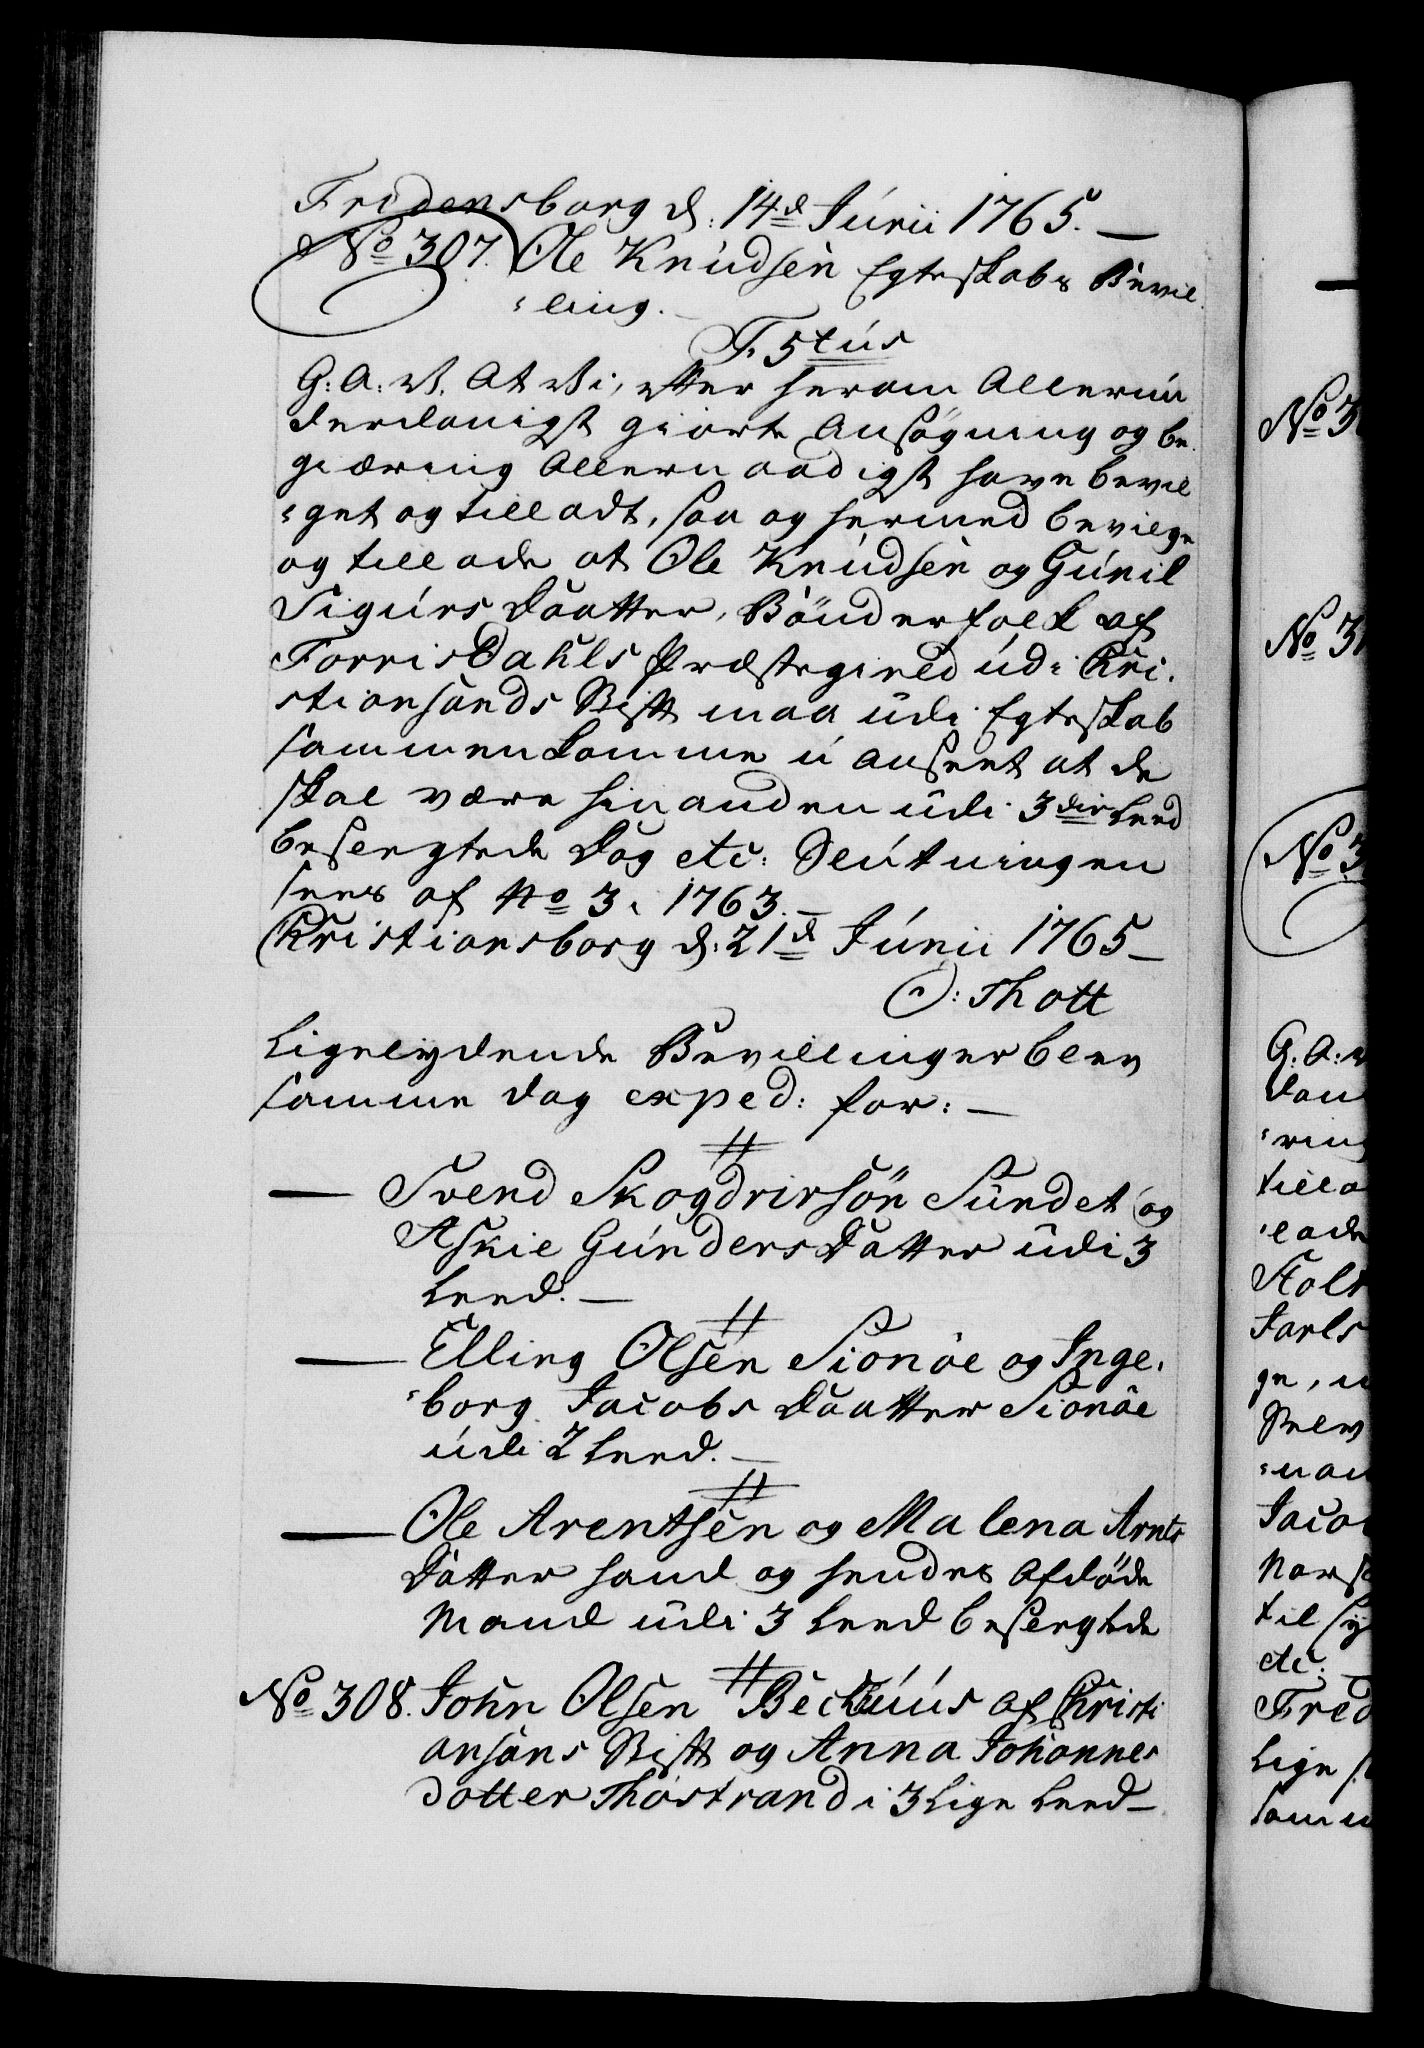 Fridensborg d: 14d Junii 1765. —
No 307. Ole Knudsen Egteskabs Bevil
-ling.
F. 5tus
G: A: V. At Vi, efter herom Allerun
derdanigst giorte Ansøgning og be
giæring Allernaadigst have bevil
-get og tilladt, saa og hermed bevilge
og tillade at Ole Knudsen og Gunil
Sigurs Daatter, Bönderfolk af
Forrisdahls Præstegield udi Chri-
stiansands Stift maa udi Egteskab
sammenkomme u anseet at de
skal være hinanden udi 3die Leed
beslegtede Dog etc: Slutningen
sees af No 3. 1763. —
Christiansborg d: 21d Junii 1765 —
O: Thott
Ligelydende Bevillinger blev
samme dag exped: for: —
— Svend Skogdrirsön Sundet og
Askie Gunders Datter udi 3
Leed. —
— Elling Olsen Sionöe og Inge-
-borg Jacobs Daatter Sionöe
udi 2 Leed. —
— Ole Arentsen og Malena Arnts
Datter hand og hendes Afdöde
Mand udi 3 Leed beslegtede
No 308. John Olsen Beckhuus af Christi
ansans Stift og Anna Johannes
dotter Thostrand i 3 Lige Leed —
No 3
No 3
No 3
G: A: